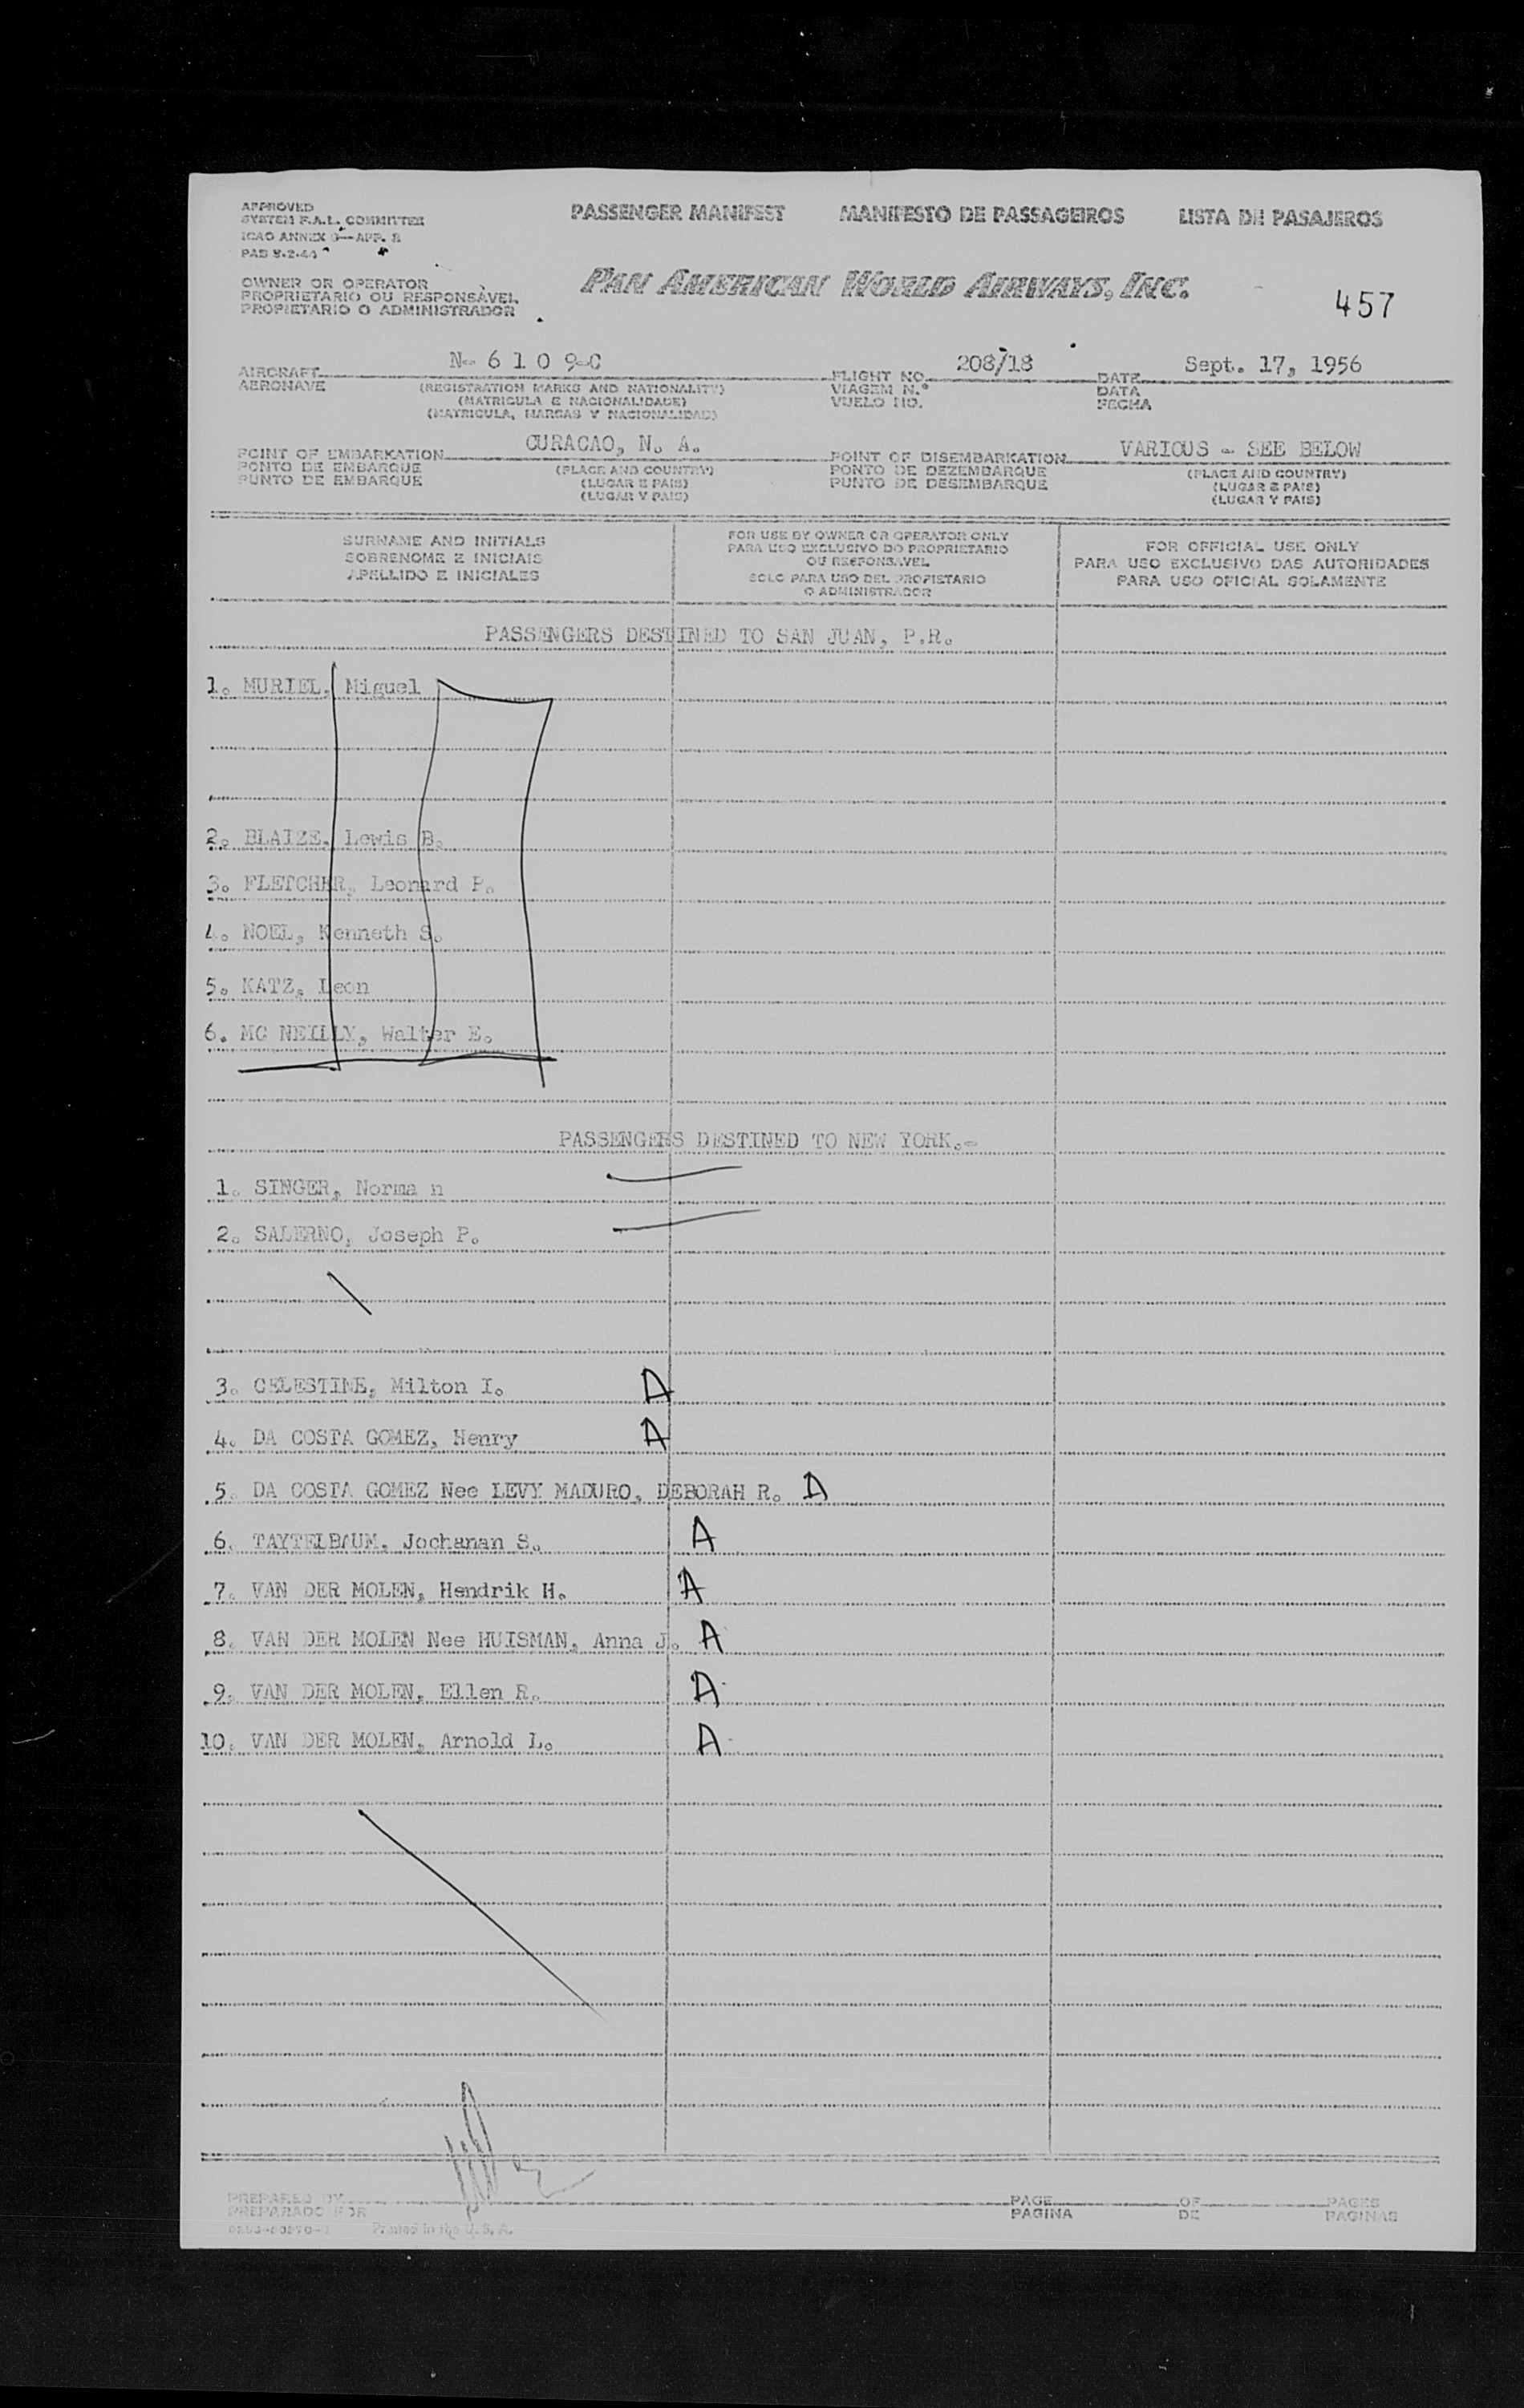 APPROVED
SYSTEM F.A.L. COMMITTEE
ICAO ANNEX 9—APP. B
PASSENGER MANIFEST MANIFESTO DE PASSAGEIROS LISTA DE PASAJEROS
OWNER OR OPERATOR
PROPRIETARIO OU RESPONSÁVEL
PROPIETARIO O ADMINISTRADOR
PAN AMERICAN WORLD AIRWAYS, INC.
457
AIRCRAFT N- 6 1 0 9-C FLIGHT NO. 208/18 DATE Sept. 17, 1956
AERONAVE (REGISTRATION MARKS AND NATIONALITY) VIAGEM N.º DATA
(MATRICULA E NACIONALIDADE) VUELO NO. FECHA
(MATRICULA, MARCAS Y NACIONALIDAD)
POINT OF EMBARKATION CURACAO, N. A. POINT OF DISEMBARKATION VARIOUS - SEE BELOW
PONTO DE EMBARQUE (PLACE AND COUNTRY) PONTO DE DEZEMBARQUE (PLACE AND COUNTRY)
PUNTO DE EMBARQUE (LUGAR E PAIS) PUNTO DE DESEMBARQUE (LUGAR E PAIS)
(LUGAR Y PAIS) (LUGAR Y PAIS)
SURNAME AND INITIALS
SOBRENOME E INICIAIS
APELLIDO E INICIALES
FOR USE BY OWNER OR OPERATOR ONLY
PARA USO EXCLUSIVO DO PROPRIETARIO
OU RESPONSAVEL
SOLO PARA USO DEL PROPIETARIO
O ADMINISTRADOR
FOR OFFICIAL USE ONLY
PARA USO EXCLUSIVO DAS AUTORIDADES
PARA USO OFICIAL SOLAMENTE
PASSENGERS DESTINED TO SAN JUAN, P.R.
1. MURIEL, Miguel
2. BLAIZE, Lewis B.
3. FLETCHER, Leonard P.
4. NOEL, Kenneth S.
5. KATZ, Leon
6. MC NEILLY, Walter E.
PASSENGERS DESTINED TO NEW YORK.-
1. SINGER, Norma n
2. SALERNO, Joseph P.
3. CELESTINE, Milton I. A
4. DA COSTA GOMEZ, Henry A
5. DA COSTA GOMEZ Nee LEVY MADURO, DEBORAH R. A
6. TAYTELBAUM, Jochanan S. A
7. VAN DER MOLEN, Hendrik H. A
8. VAN DER MOLEN Nee HUISMAN, Anna J. A
9. VAN DER MOLEN, Ellen R. A
10. VAN DER MOLEN, Arnold L. A
PREPARED BY PAGE OF PAGES
PREPARADO POR PAGINA DE PAGINAS
Printed in the U. S. A.